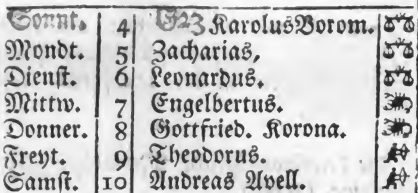 Sonnt. 4 G23 Karolus Borom.
Mondt. 5 Zacharias,
Dienst. 6 Leonardus.
Mittw. 7 Engelbertus.
Donner. 8 Gottfried. Korona.
Freyt. 9 Theodorus.
Samst. 10 Andreas Avell.